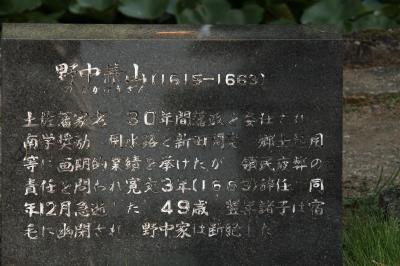 野中兼山(1615-1663)
のなかけんざん
土佐藩家老 30年間藩政を委任され
南学奨励 用水路と新田開発 郷士起用
等に画期的業績を挙げたが 領民疲弊の
責任を問われ寛文3年(1663)辞任 同
年12月急逝した 49歳 翌年諸子は宿
毛に幽閉され 野中家は断絶した